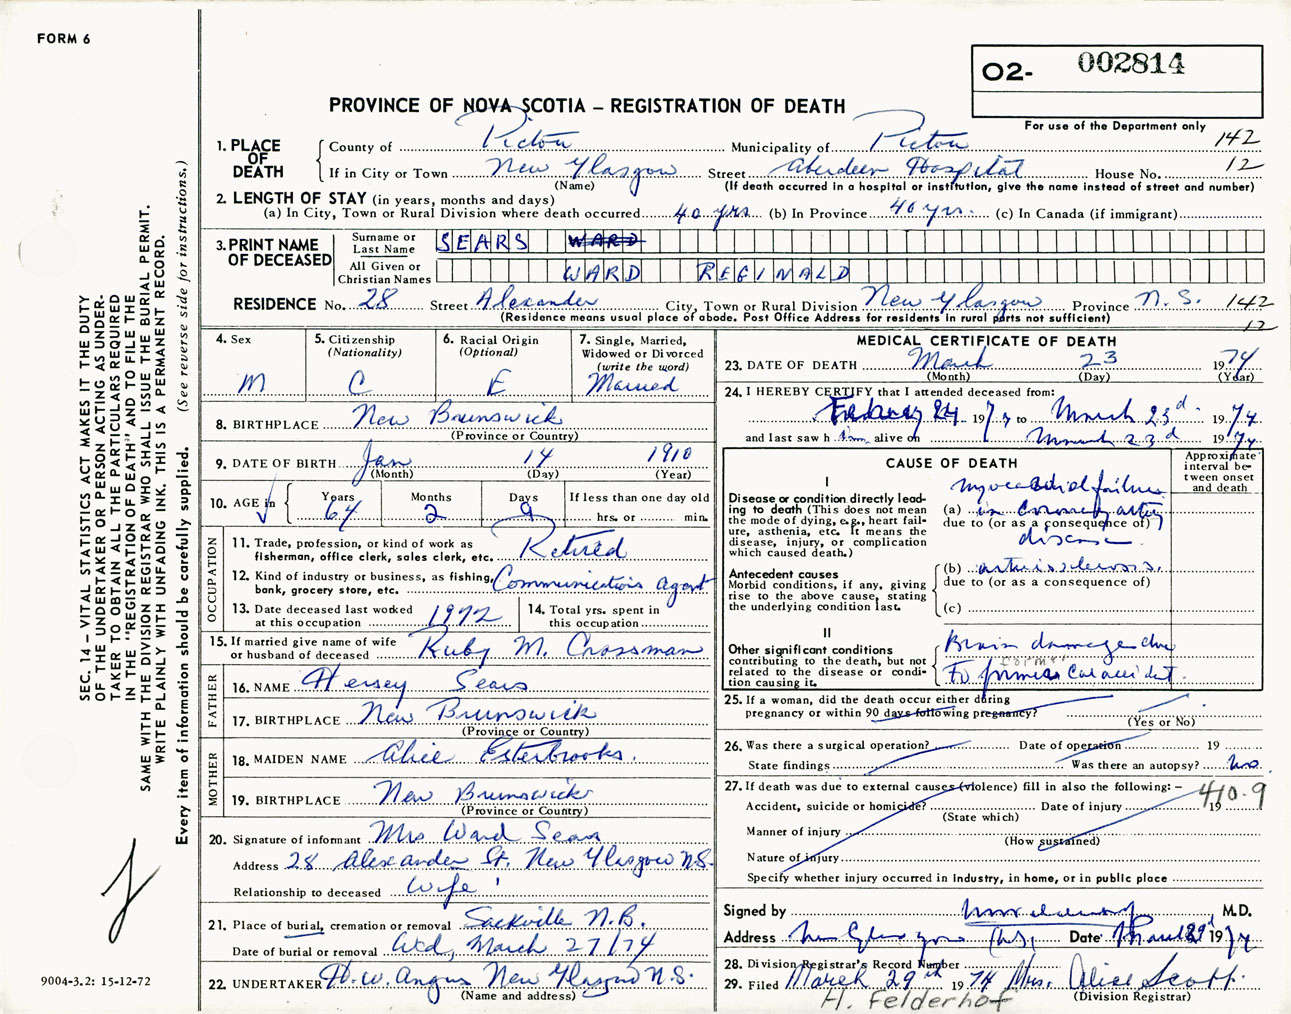 FORM 6
O2- 002814
PROVINCE OF NOVA SCOTIA – REGISTRATION OF DEATH
For use of the Department only
1. PLACE OF DEATH
County of Pictou Municipality of Pictou 142
If in City or Town New Glasgow Street Aberdeen Hospital House No. 12
(Name) (If death occurred in a hospital or institution, give the name instead of street and number)
2. LENGTH OF STAY (in years, months and days)
(a) In City, Town or Rural Division where death occurred 40 yrs (b) In Province 40 yrs. (c) In Canada (if immigrant)
3. PRINT NAME OF DECEASED
Surname or Last Name SEARS WARD
All Given or Christian Names WARD REGINALD
RESIDENCE No. 28 Street Alexander City, Town or Rural Division New Glasgow Province N.S. 142
(Residence means usual place of abode. Post Office Address for residents in rural parts not sufficient) 12
4. Sex
M
5. Citizenship
(Nationality)
C
6. Racial Origin
(Optional)
E
7. Single, Married,
Widowed or Divorced
(write the word)
Married
8. BIRTHPLACE New Brunswick
(Province or Country)
9. DATE OF BIRTH Jan 14 1910
(Month) (Day) (Year)
10. AGE in
Years Months Days If less than one day old
64 2 9 hrs. or min.
OCCUPATION
11. Trade, profession, or kind of work as
fisherman, office clerk, sales clerk, etc. Retired
12. Kind of industry or business, as fishing,
bank, grocery store, etc. Communications Agent
13. Date deceased last worked
at this occupation 1972
14. Total yrs. spent in
this occupation
15. If married give name of wife
or husband of deceased Ruby M. Crossman
FATHER
16. NAME Hersey Sears
17. BIRTHPLACE New Brunswick
(Province or Country)
MOTHER
18. MAIDEN NAME Alice Esterbrooks.
19. BIRTHPLACE New Brunswick
(Province or Country)
20. Signature of informant Mrs Ward Sears
Address 28 Alexander St. New Glasgow N.S.
Relationship to deceased Wife
21. Place of burial, cremation or removal Sackville N.B.
Date of burial or removal Wed, March 27/74
22. UNDERTAKER H.W. Angus New Glasgow N.S.
(Name and address)
MEDICAL CERTIFICATE OF DEATH
23. DATE OF DEATH March 23 1974
(Month) (Day) (Year)
24. I HEREBY CERTIFY that I attended deceased from:
February 24 1974 to March 23d 1974
and last saw him alive on March 23d 1974
CAUSE OF DEATH
Approximate interval between onset and death
I
Disease or condition directly leading to death (This does not mean the mode of dying, e.g., heart failure, asthenia, etc. It means the disease, injury, or complication which caused death.)
myocardial failure
(a) in coronary artery
due to (or as a consequence of)
disease
Antecedent causes
Morbid conditions, if any, giving rise to the above cause, stating the underlying condition last.
(b) arteriosclerosis.
due to (or as a consequence of)
(c)
II
Other significant conditions
contributing to the death, but not related to the disease or condition causing it.
Brain damage due
former
To former car accident.
25. If a woman, did the death occur either during
pregnancy or within 90 days following pregnancy?
(Yes or No)
26. Was there a surgical operation? Date of operation 19
State findings Was there an autopsy? no.
27. If death was due to external causes (violence) fill in also the following: –
410.9
Accident, suicide or homicide? Date of injury 19
(State which)
Manner of injury
(How sustained)
Nature of injury
Specify whether injury occurred in Industry, in home, or in public place
Signed by M.D.
Address New Glasgow N.S. Date March 29 1974
28. Division Registrar's Record Number
29. Filed March 29th 1974 Mrs. Alice Scott.
(Division Registrar)
H. Felderhof
SEC. 14 – VITAL STATISTICS ACT MAKES IT THE DUTY
OF THE UNDERTAKER OR PERSON ACTING AS UNDER-
TAKER TO OBTAIN ALL THE PARTICULARS REQUIRED
IN THE "REGISTRATION OF DEATH" AND TO FILE THE
SAME WITH THE DIVISION REGISTRAR WHO SHALL ISSUE THE BURIAL PERMIT.
WRITE PLAINLY WITH UNFADING INK. THIS IS A PERMANENT RECORD.
Every item of information should be carefully supplied. (See reverse side for instructions.)
9004-3.2: 15-12-72